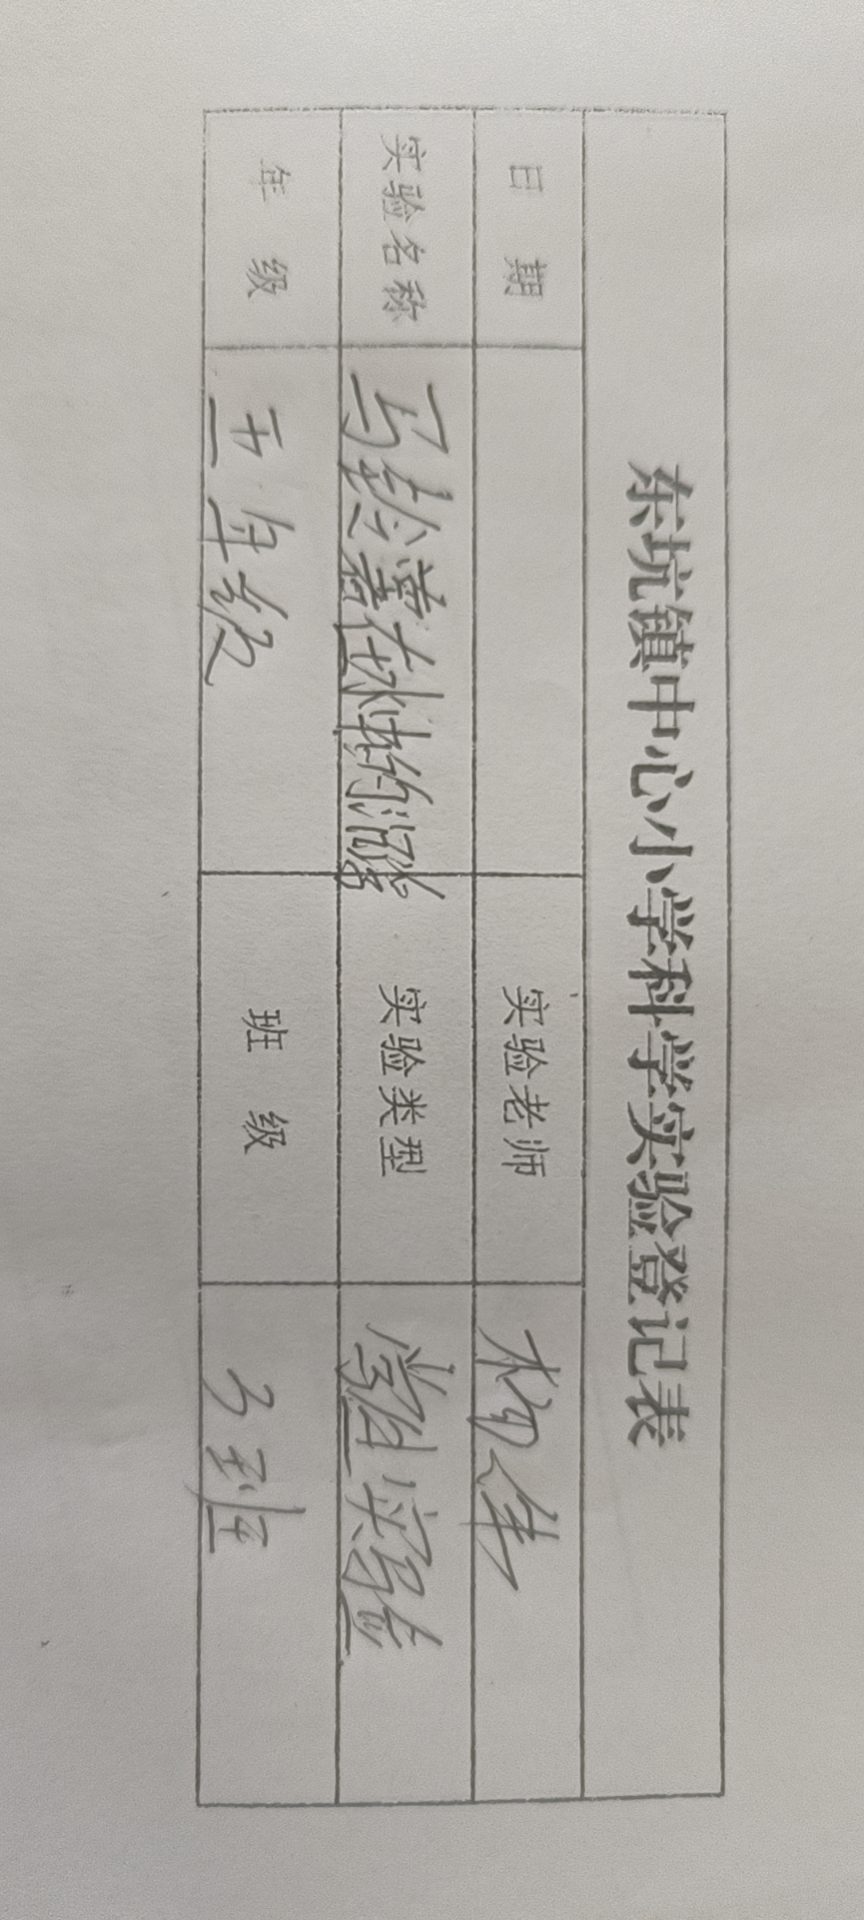 东坑镇中心小学科学实验登记表
日 期 实验老师 杨伟
实验名称 马铃薯在水中的沉浮 实验类型 学生实验
年 级 五年级 班 级 3班